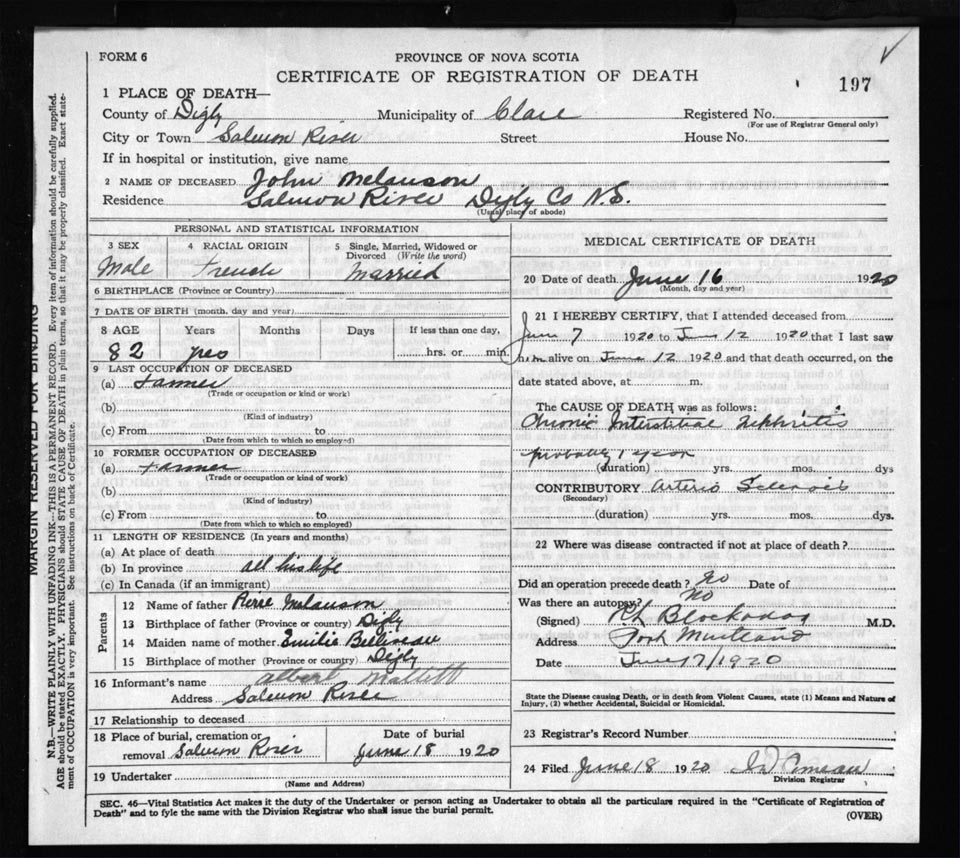 FORM 6
PROVINCE OF NOVA SCOTIA
CERTIFICATE OF REGISTRATION OF DEATH
197
1 PLACE OF DEATH—
County of Digby Municipality of Clare Registered No.
(For use of Registrar General only)
City or Town Salmon River Street House No.
If in hospital or institution, give name
2 NAME OF DECEASED John Melanson
Residence Salmon River Digby Co N.S.
(Usual place of abode)
PERSONAL AND STATISTICAL INFORMATION
3 SEX 4 RACIAL ORIGIN 5 Single, Married, Widowed or
Divorced (Write the word)
Male French Married
6 BIRTHPLACE (Province or Country)
7 DATE OF BIRTH (month, day and year)
8 AGE Years Months Days If less than one day,
82 yrs hrs. or min.
9 LAST OCCUPATION OF DECEASED
(a) Farmer
(Trade or occupation or kind of work)
(b)
(Kind of industry)
(c) From to
(Date from which to which so employed)
10 FORMER OCCUPATION OF DECEASED
(a) Farmer
(Trade or occupation or kind of work)
(b)
(Kind of industry)
(c) From to
(Date from which to which so employed)
11 LENGTH OF RESIDENCE (In years and months)
(a) At place of death
(b) In province all his life
(c) In Canada (if an immigrant)
Parents
12 Name of father Pierre Melanson
13 Birthplace of father (Province or country) Digby
14 Maiden name of mother Emilie Belliveau
15 Birthplace of mother (Province or country) Digby
16 Informant's name Albert Mallett
Address Salmon River
17 Relationship to deceased
18 Place of burial, cremation or Date of burial
removal Salmon River June 18 1920
19 Undertaker
(Name and Address)
MEDICAL CERTIFICATE OF DEATH
20 Date of death June 16 1920
(Month, day and year)
21 I HEREBY CERTIFY, that I attended deceased from
June 7 1920 to June 12 1920 that I last saw
him alive on June 12 1920 and that death occurred, on the
date stated above, at m.
The CAUSE OF DEATH was as follows:
Chronic Interstitial Nephritis
probably 1 year
(duration) yrs. mos. dys
CONTRIBUTORY Arterio Sclerosis
(Secondary)
(duration) yrs. mos. dys.
22 Where was disease contracted if not at place of death?
Did an operation precede death? No Date of
Was there an autopsy? No
(Signed) M.D.
Address Port Maitland
Date June 17/1920
State the Disease causing Death, or in death from Violent Causes, state (1) Means and Nature of
Injury, (2) whether Accidental, Suicidal or Homicidal.
23 Registrar's Record Number
24 Filed June 18 1920 Comeau
Division Registrar
SEC. 46—Vital Statistics Act makes it the duty of the Undertaker or person acting as Undertaker to obtain all the particulars required in the "Certificate of Registration of
Death" and to fyle the same with the Division Registrar who shall issue the burial permit.
(OVER)
MARGIN RESERVED FOR BINDING
N.B.—WRITE PLAINLY WITH UNFADING INK—THIS IS A PERMANENT RECORD. Every item of information should be carefully supplied.
AGE should be stated EXACTLY. PHYSICIANS should STATE CAUSE OF DEATH in plain terms, so that it may be properly classified. Exact state-
ment of OCCUPATION is very important. See instructions on back of Certificate.